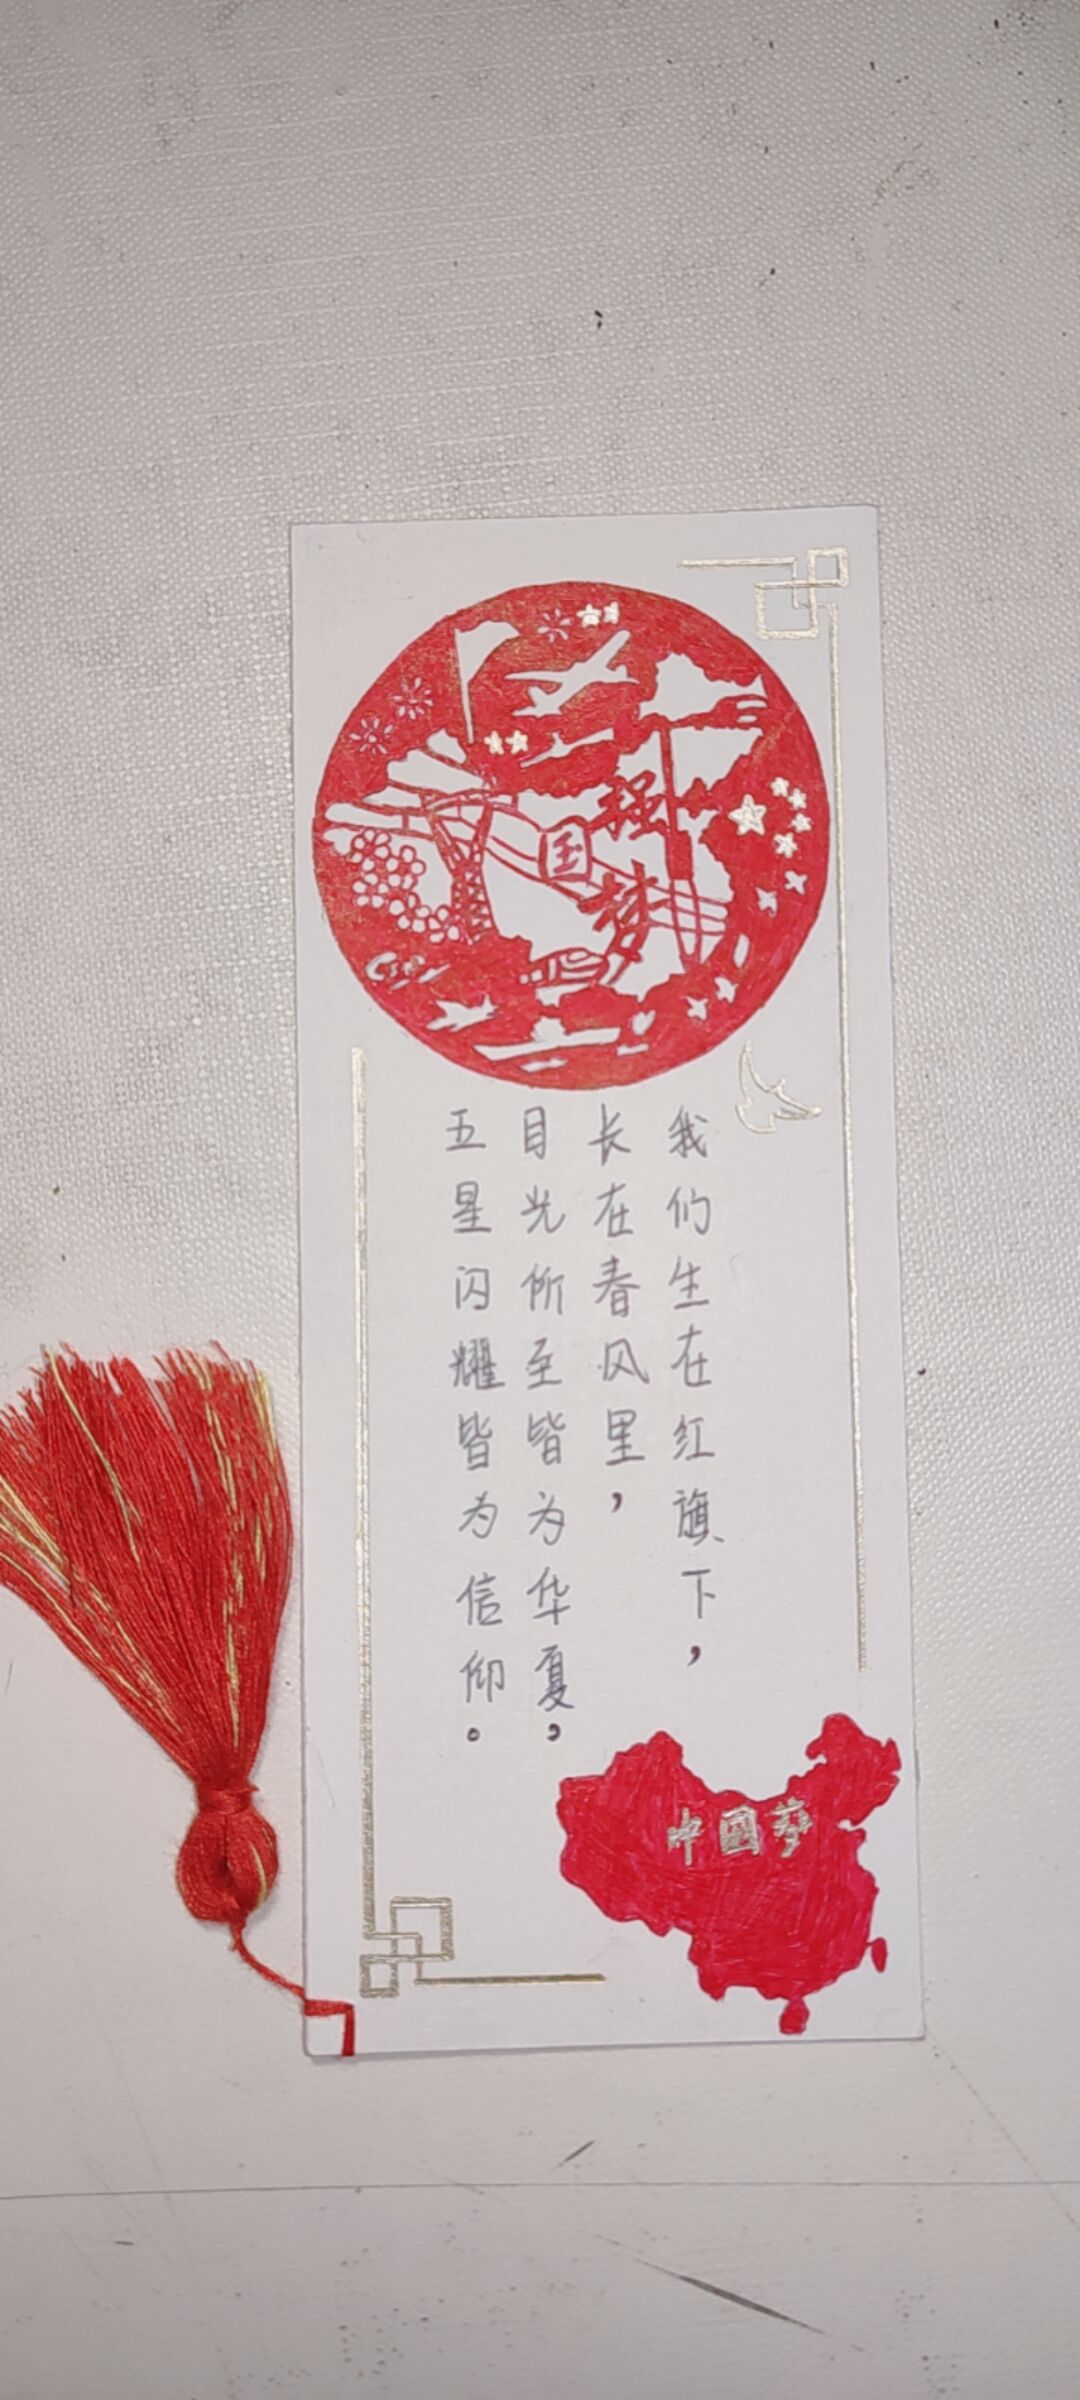 强国梦
我们生在红旗下，
长在春风里，
目光所至皆为华夏，
五星闪耀皆为信仰。
中國梦